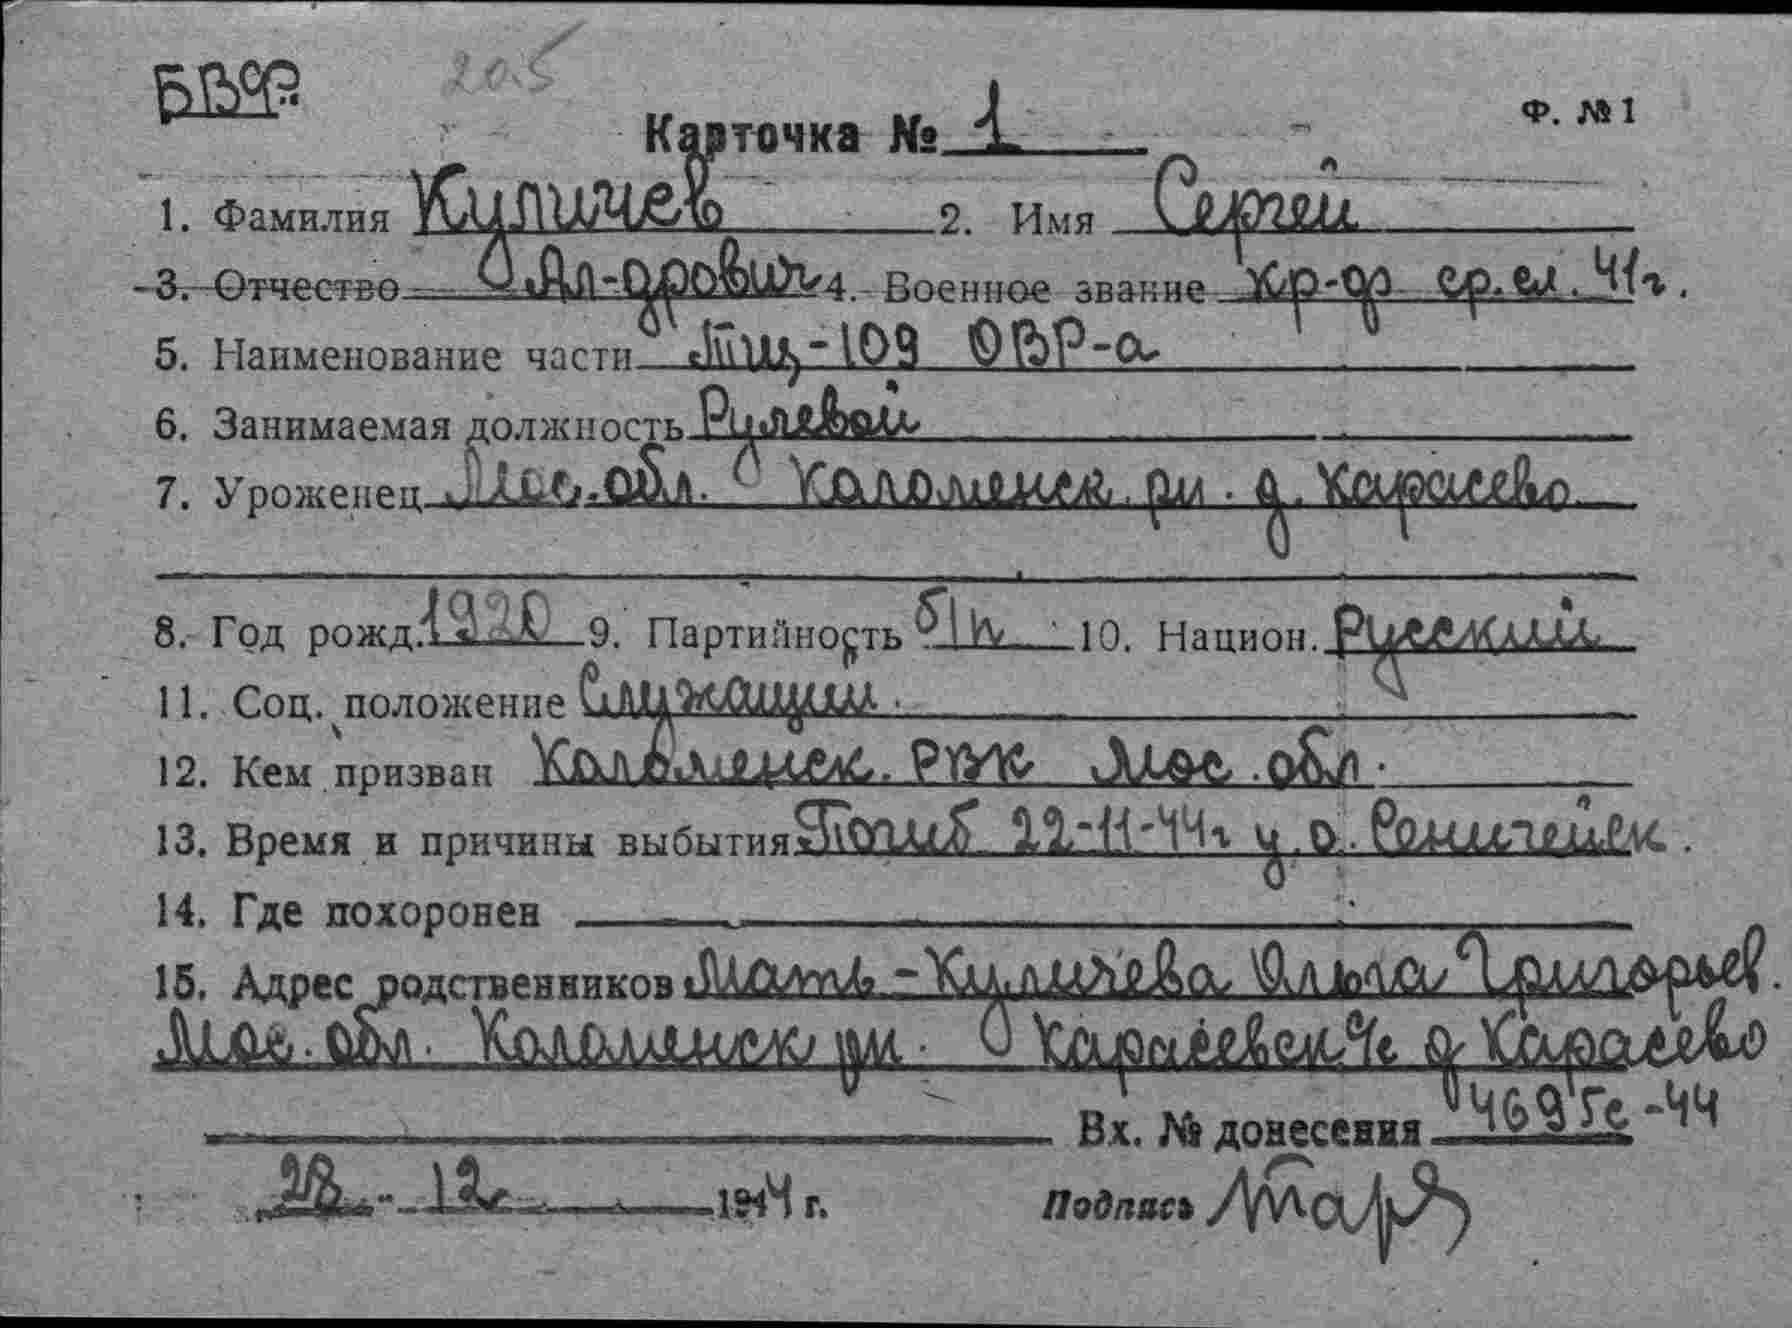 БВФ. 205
Карточка № 1 Ф. №1
1. Фамилия Куличев 2. Имя Сергей
3. Отчество Ал-дрович 4. Военное звание кр-ф ср.сл. 41г.
5. Наименование части Тщ-109 ОВР-а
6. Занимаемая должность Рулевой
7. Уроженец Мос. обл. Коломенск. рн. д. Карасево
8. Год рожд. 1920 9. Партийность б/п 10. Национ. Русский
11. Соц. положение Служащии.
12. Кем призван Коломенск. РВК Мос. обл.
13. Время и причины выбытия Погиб 22-11-44г у о.
14. Где похоронен
15. Адрес родственников Мать - Куличева Ольга Григорьев.
Мос. обл. Коломенск рн. Карасевск. с/с д Карасево
Вх. № донесения 4695с -44
28 - 12 1944 г. Подпись